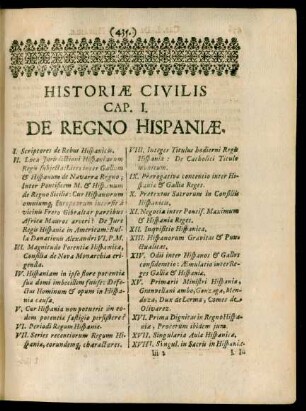 (435.)
HISTORIÆ CIVILIS
CAP. I.
DE REGNO HISPANIÆ.
I. Scriptores de Rebus Hispanicis.
II. Loca Jurisdictioni Hispaniarum
Regis subjecta: Lites inter Gallum
& Hispanum de Navarra Regno;
Inter Pontificem M. & Hispanum
de Regno Siciliæ: Cur Hispanorum
omnium,
vicinis Freto Gibraltar partibus
Africæ Mauros arceri? De Jure
Regis Hispaniæ in Americam: Bulla
Donationis Alexandri VI. P. M.
III. Magnitudo Potentiæ Hispanicæ,
Consilia de Nova Monarchia erigenda.
IV. Hispaniam in ipso flore potentiæ
suæ demi imbecillem fuisse: Defectus
hominum & opum in Hispania
causa.
V. Cur Hispania non potuerit in eodem
potentiæ fastigio persistere?
VI. Periodi Regum Hispaniæ.
VII. Series recentiorum Regum Hispaniæ,
eorundemq; characteres.
VIII. Integer Titulus hodierni Regis
Hispaniæ: De Catholici Titulo
IX. Prærogativæ contentio inter Hispaniæ
& Galliæ Reges.
X. Protestas Satrarum in Consiliis
Hispanicis.
XI. Negotia inter Pontif. Maximum
& Hispaniæ Regem.
XII. Inquisitio Hispanica.
XIII. Hispanorum Gravitas & Punctualitas.
XIV. Odii inter Hispanos & Gallos
consideratio: Æmulatio inter Reges
Galliæ & Hispaniæ.
XV. Primarii Ministri Hispaniæ,
Granvellani ambo, Gonzaga, Mendoza,
Dux de Lerma, Comes de
Olivarez.
XVI. Prima Dignitas in Regno Hispaniæ:
Procerum ibidem jura.
XVII. Singularia Aulæ Hispanicæ.
XVIII. Singul. in Sacris in Hispania.
Iii 2
I. Ill